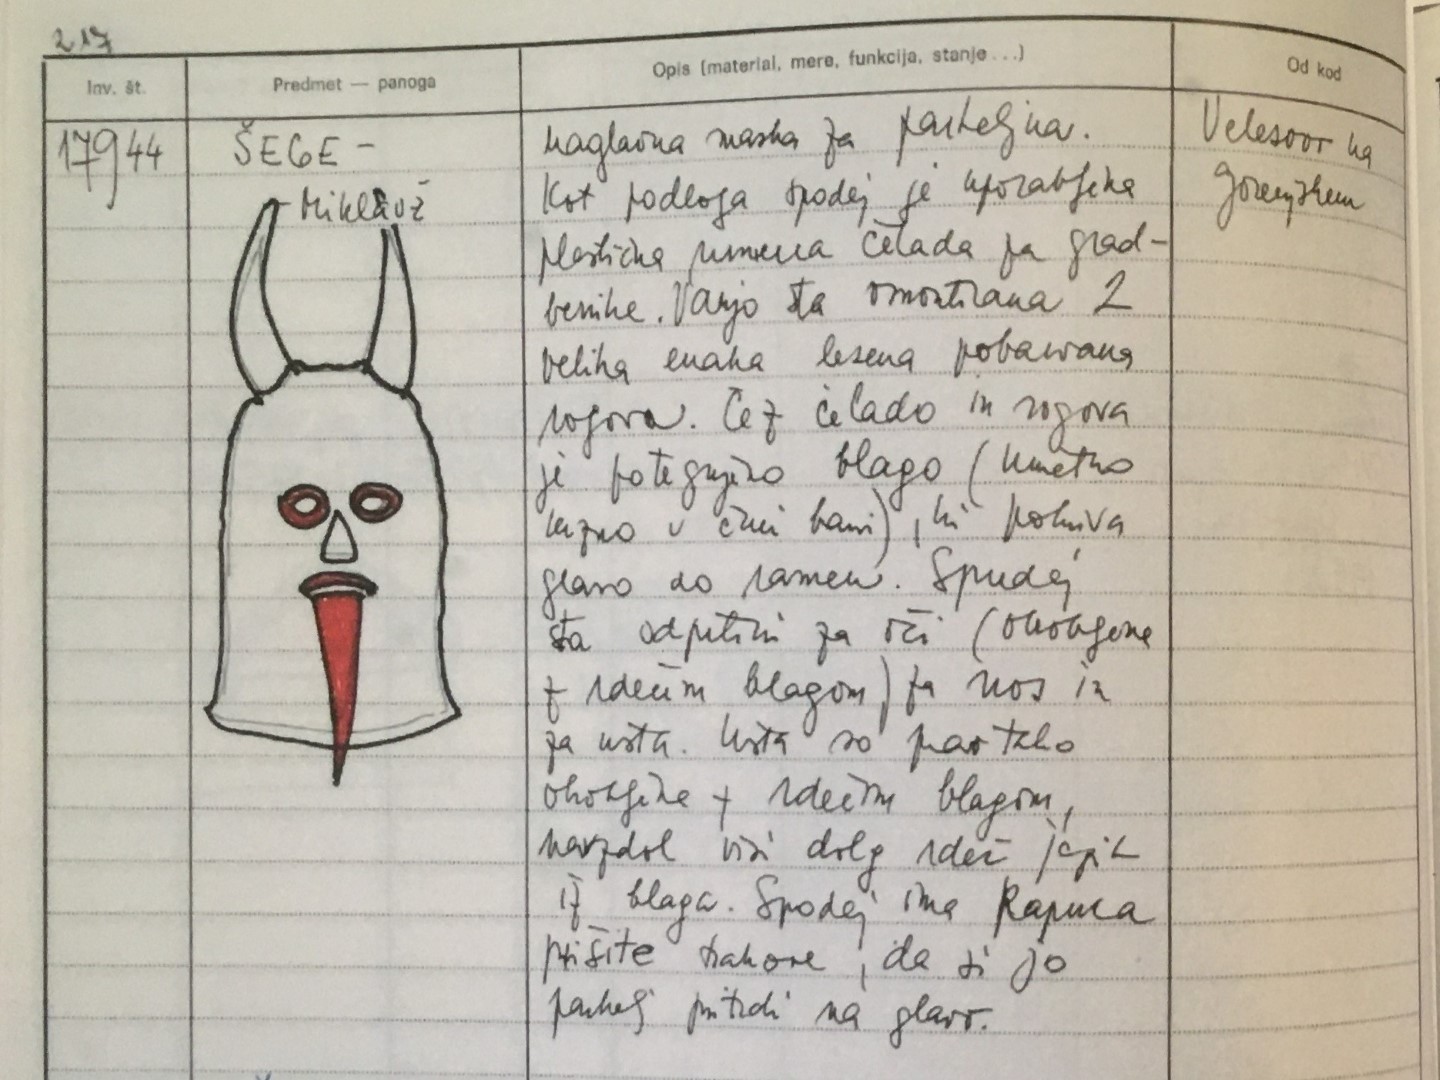 217
Inv. št.
Predmet — panoga
Opis (material, mere, funkcija, stanje . . .)
Od kod
17944
ŠEGE -
- Miklavž
naglavna maska za parkeljna.
Kot podloga spodej je uporabljena
plastična rumena čelada za grad-
benike. Vanjo sta vmontirana 2
velika enaka lesena pobarvana
rogova. Čez čelado in rogova
je potegnjeno blago (umetno
krzno v črni barvi), ki pokriva
glavo do ramen. Spredej
sta odprtini za oči (obobljene
z rdečim blagom) za nos in
za usta. Usta so prav tako
obobljene z rdečim blagom,
navzdol visi dolg rdeč jezik
iz blaga. Spodej ima kapuca
prišite trakove, da si jo
parkelj pritrdi na glavo.
Velesovo na
Gorenjskem